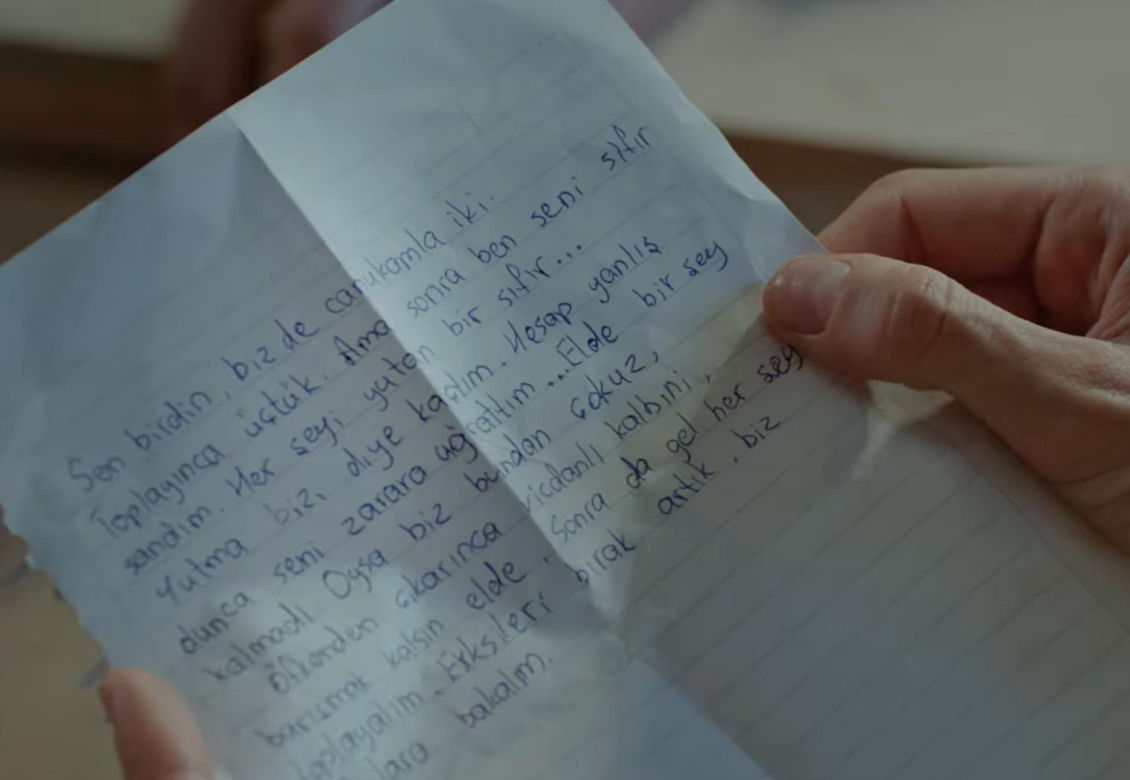 Sen birdin, biz de iki.
Toplayınca üçtük. Ama sonra ben seni sıfır
sandım. Her seyi yutan bir sıfır...
Yutma bizi diye kaçtım. Hesap yanlış
olunca seni zarara uğrattım...Elde bir sey
kalmadı Oysa biz bundan çokuz,
öfkenden çıkarınca vicdanlı kalbini,
barısmak kalsın elde. Sonra da gel her sey
toplayalım. Eksileri bırak artık, biz
bakalım.